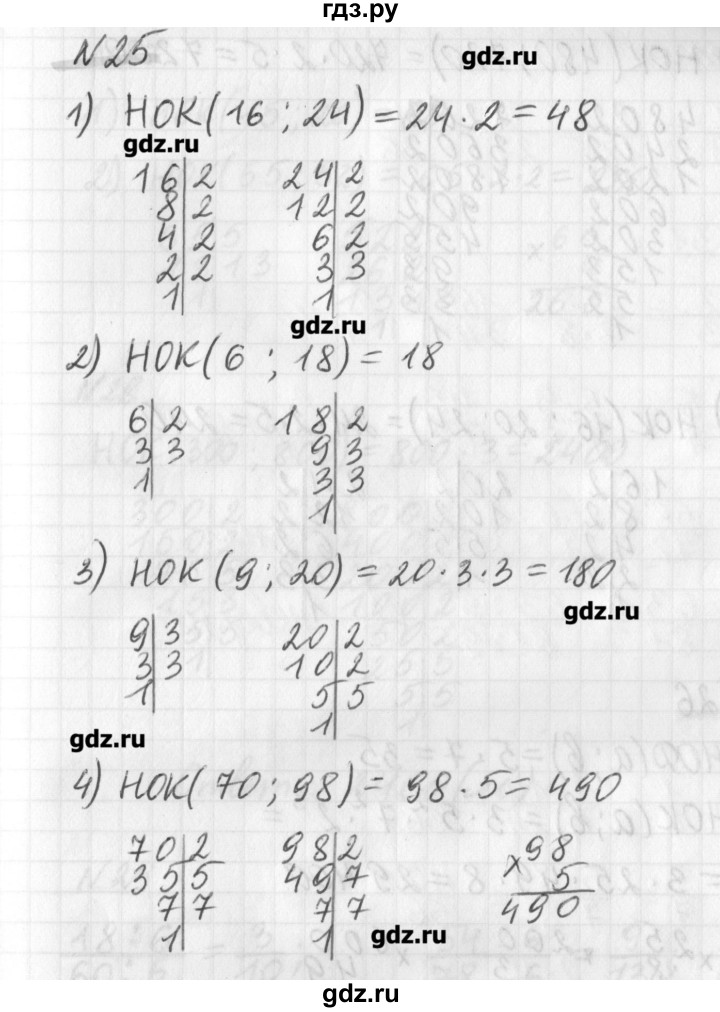 гдз.ру
№25
gdz.ru
1) НОК(16 ; 24) = 24 · 2 = 48
gdz.ru
16|2 24|2
8|2 12|2
4|2 6|2
2|2 3|3
1| 1|
gdz.ru
2) НОК(6 ; 18) = 18
6|2 18|2
3|3 9|3
1| 3|3
1|
3) НОК(9 ; 20) = 20 · 3 · 3 = 180
gdz.ru
9|3 20|2
3|3 10|2
1| 5|5
1|
gdz.ru
4) НОК(70 ; 98) = 98 · 5 = 490
70|2 98|2 ×98
35|5 49|7 5
7|7 7|7 490
1| 1|
gdz.ru
gdz.ru